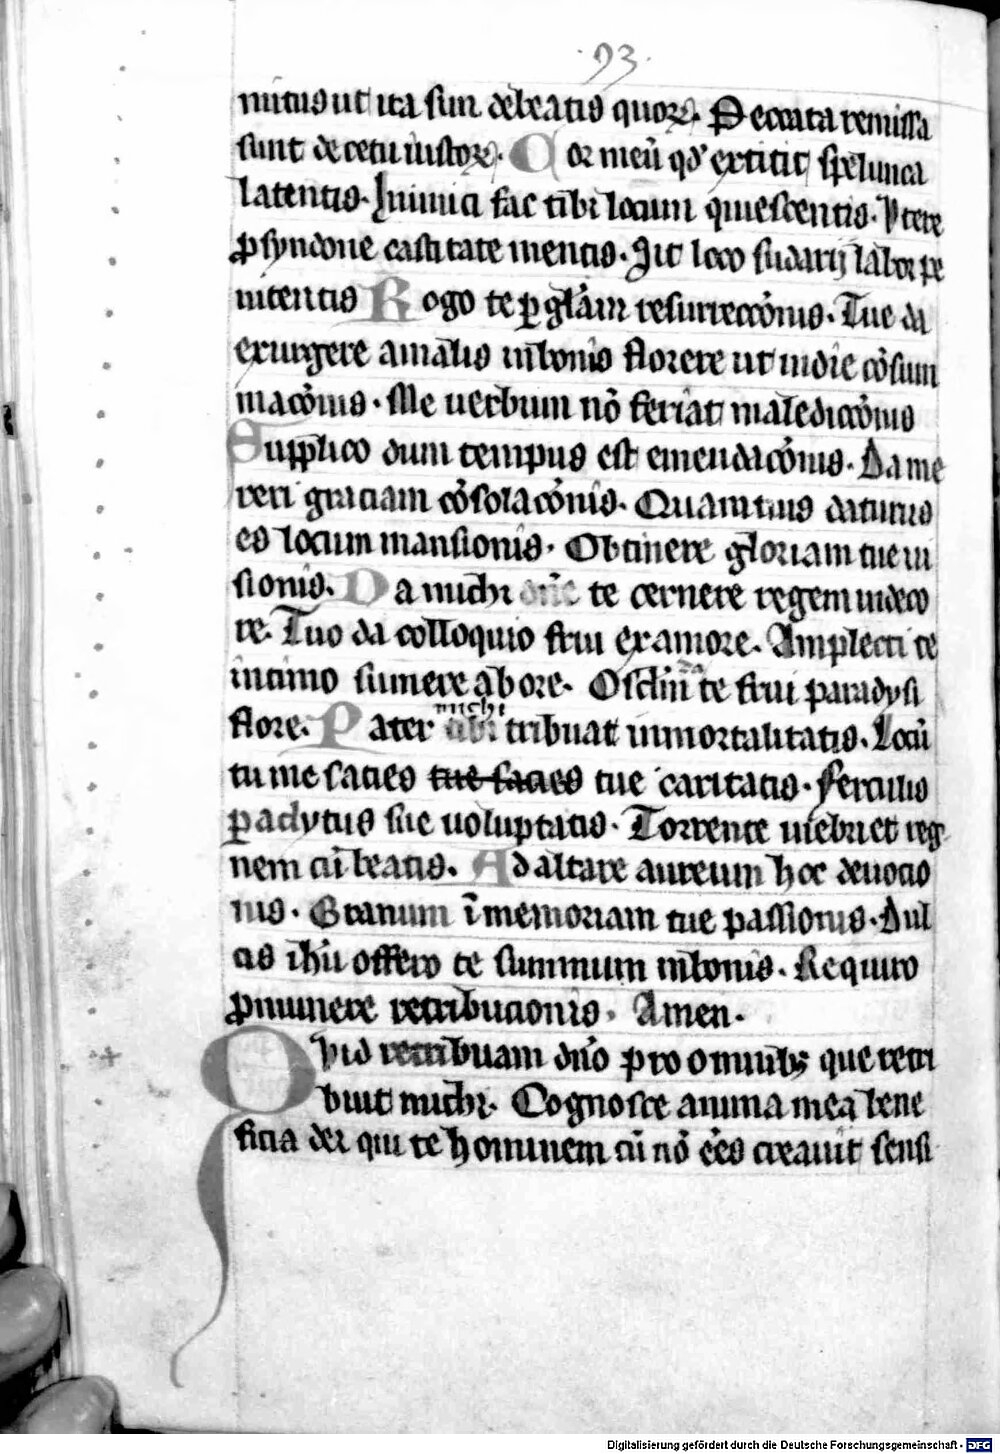 ·93·
nitus ut ita sim de beatis quorꝝ. Peccata remissa
sunt de cetu iustorꝝ. Cor meū qđ extitit spelunca
latentis. Inimici fac tibi locum quiescentis. Utere
ꝓ syndone castitate mentis. Sit loco sudarij labor pe
nitentis Rogo te ꝑ glām resurreccōnis. Tue da
exurgere a malis in bonis florere ut in die cōsum
macōnis. Me verbum nō feriat malediccōnis
Supplico dum tempus est emendacōnis. Da me
reri graciam cōsolacōnis. Quam
es locum mansionis. Obtinere gloriam tue vi
sionis. Da michi dn̄e te cernere regem in deco
re. Tuo da colloquio frui ex amore. Amplecti te
intimo sumere ab ore. te frui paradysi
flore. Pater michi tibi tribuat inmortalitatis. Locū
tu me sacies tue sacies tue caritatis. Ferculis
ꝑaclytus sue voluptatis. Torrente inebriet reg
nem cū beatis. Ad altare aureum hoc devocio
nis. Granum ī memoriam tue passionis. Dul
cis ihū offero te summum in bonis. Requiro
ꝓ munere retribucionis. Amen.
Quid retribuam dn̄o pro omnibꝫ que retri
buit michi. Cognosce anima mea bene
ficia dei qui te hominem cū nō eēs creavit sensi
Digitalisierung gefördert durch die Deutsche Forschungsgemeinschaft - DFG